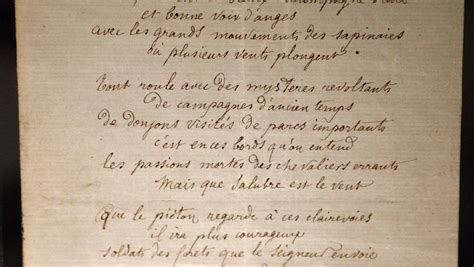 et bonne voix d'anges
avec les grands mouvements des sapinaies
où plusieurs vents plongent.
Tout roule avec des mystères révoltants
de campagnes d'ancien temps
de donjons visités de parcs importants
c'est en ces bords qu'on entend
les passions mortes des chevaliers errants
Mais que salubre est le vent
Que le piéton regarde à ces clairevoies
il ira plus courageux
soldats des forêts que le seigneur envoie